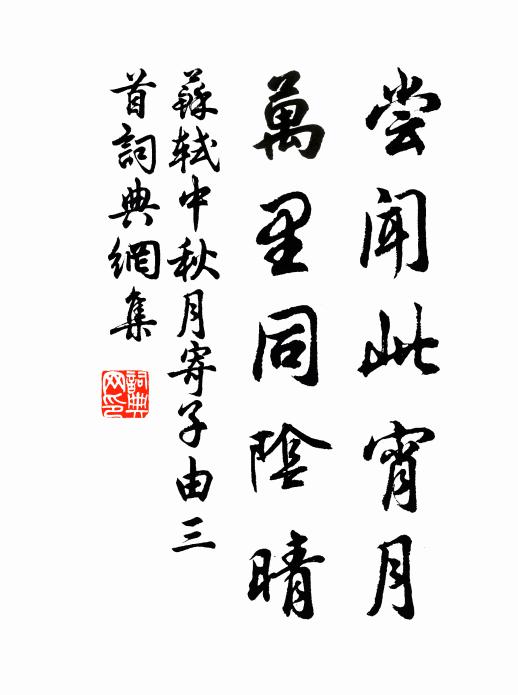 尝聞此宵月
萬里同陰晴
蘇軾中秋月寄子由三
首詞典網集
詞典
网印